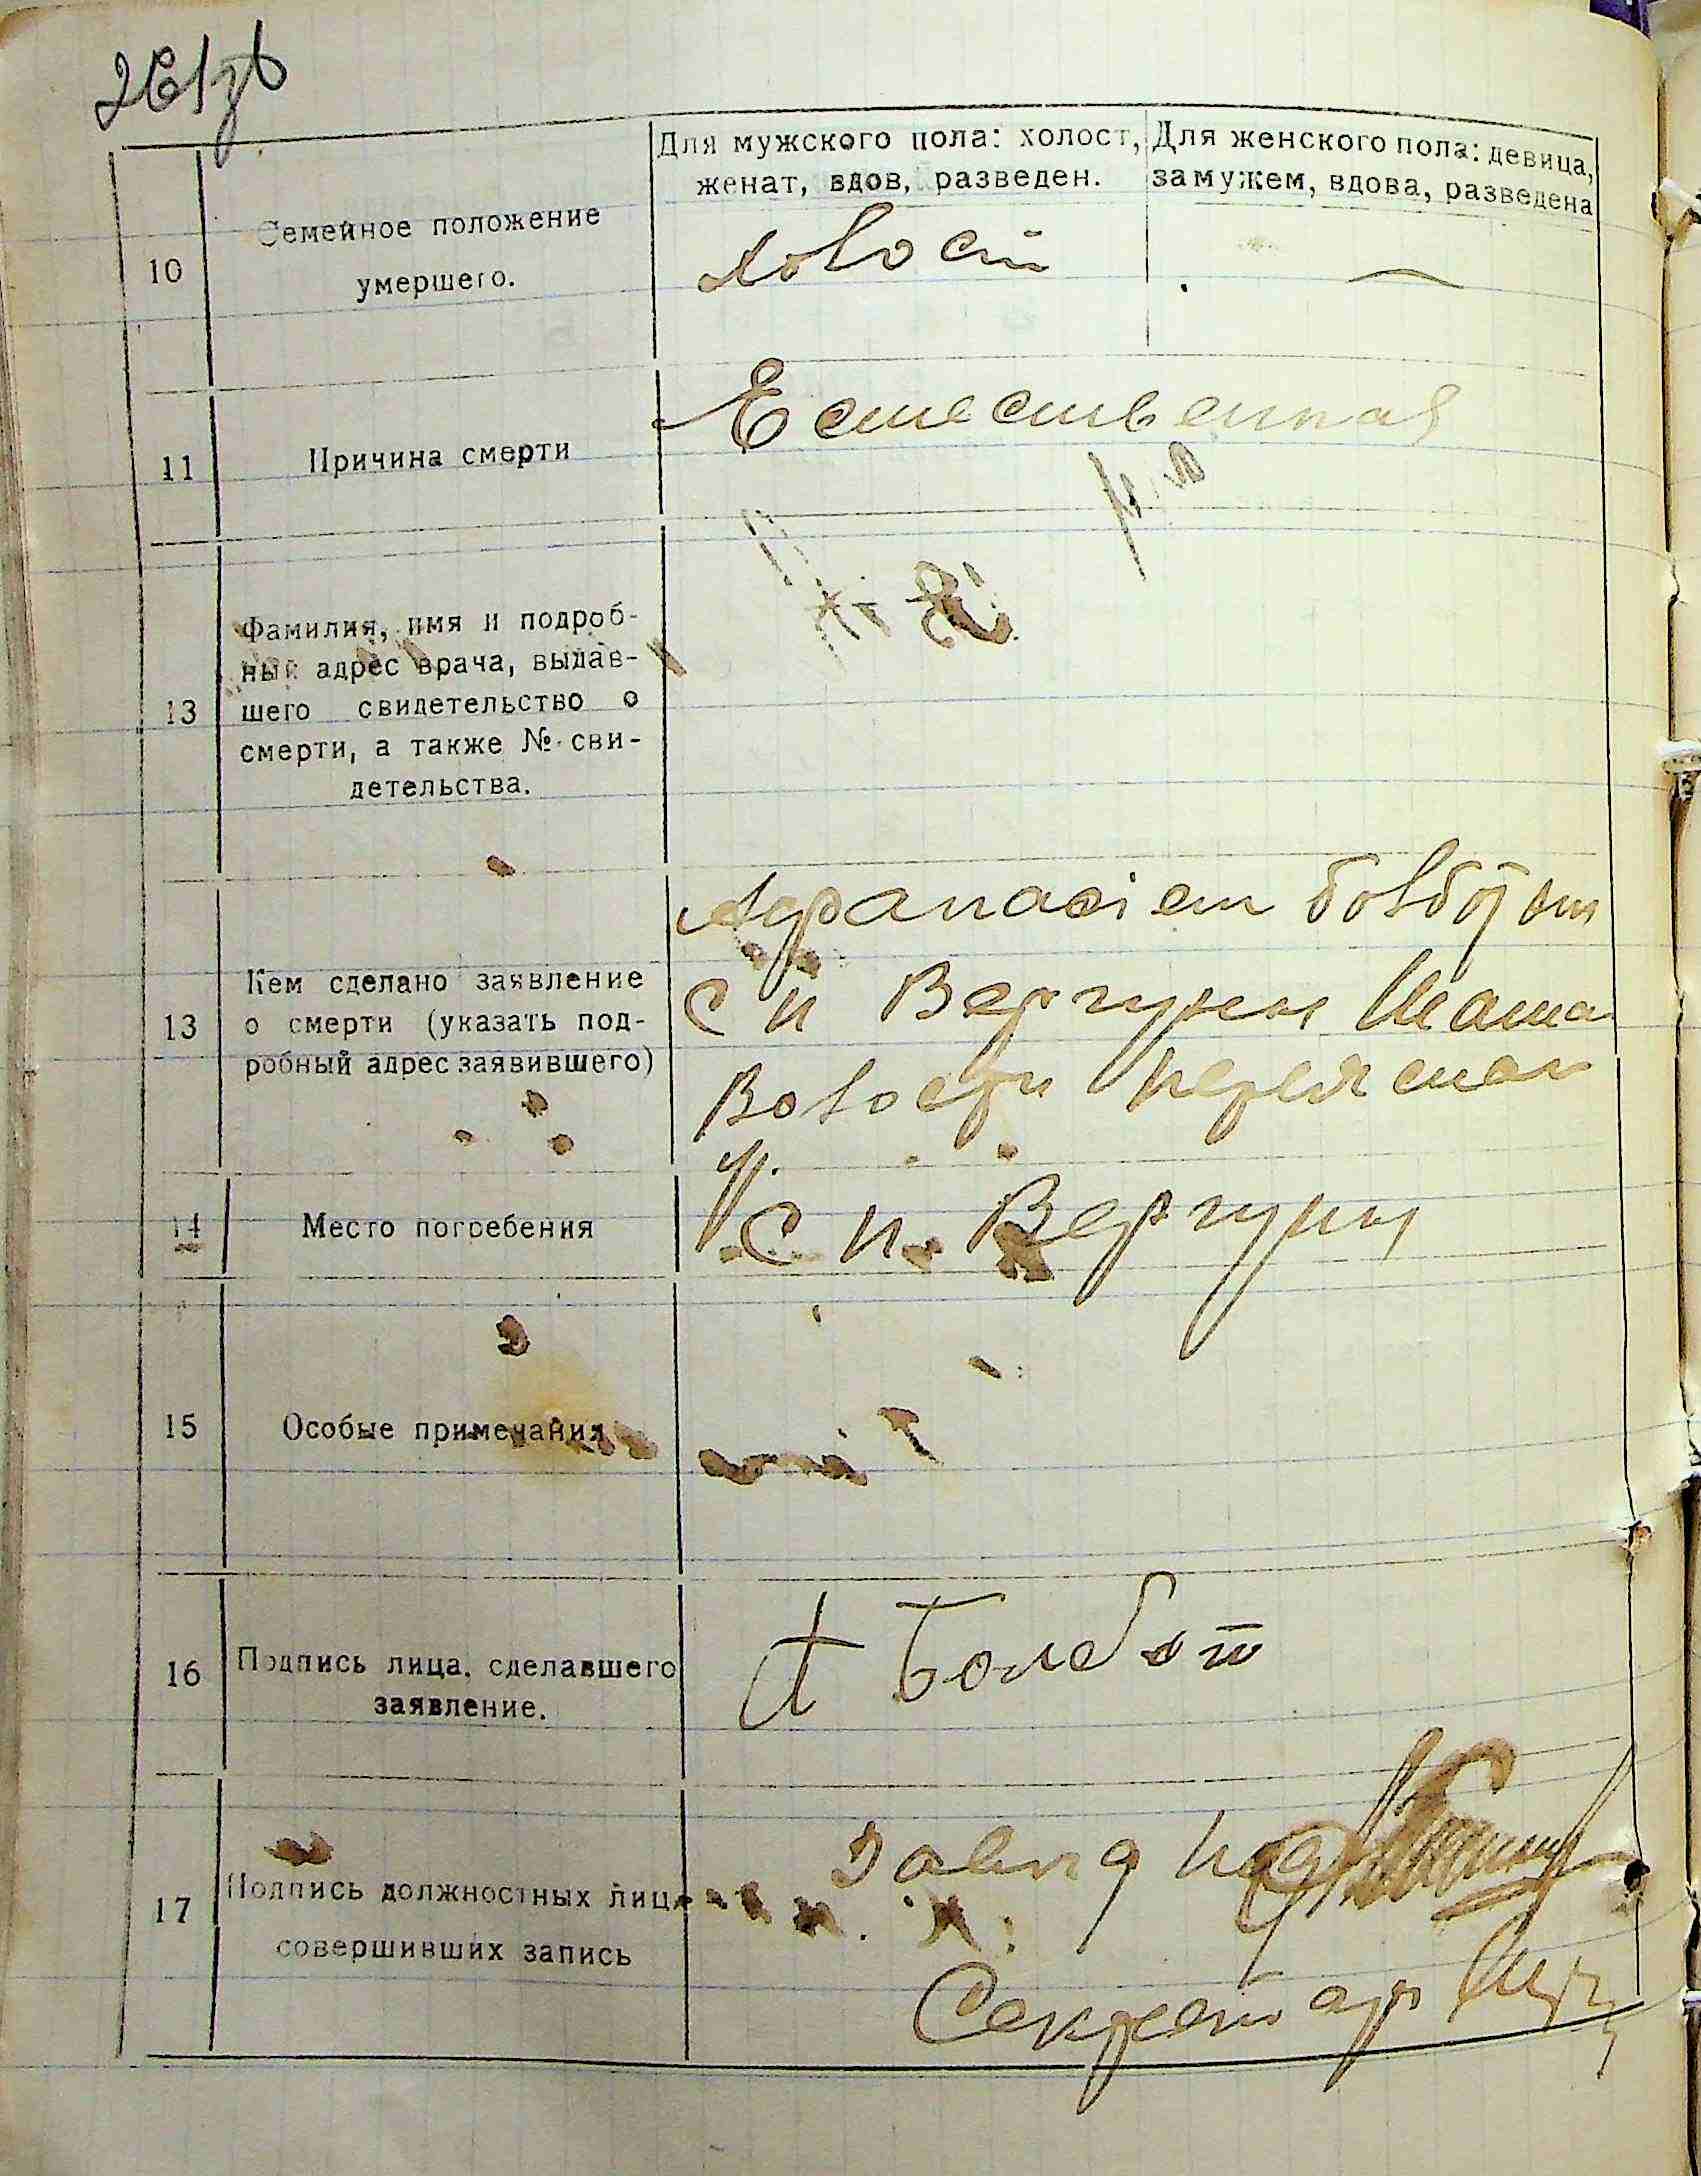 261зв
Для мужского пола: холост,
женат, вдов, разведен.
Для женского пола: девица,
замужем, вдова, разведена
10
Семейное положение
умершего.
холост
—
11
Причина смерти
Естественная
13
Фамилия, имя и подроб-
ный адрес врача, выдав-
шего свидетельство о
смерти, а также № сви-
детельства.
13
Кем сделано заявление
о смерти (указать под-
робный адрес заявившего)
Афанасіем Болботом
С п Вергуны
Волости Переяслав
У.
14
Место погребения
С п. Вергуны
15
Особые примечания
16
Подпись лица, сделавшего
заявление.
А Болбот
17
Подпись должностных лиц,
совершивших запись
Завид под
Секретар